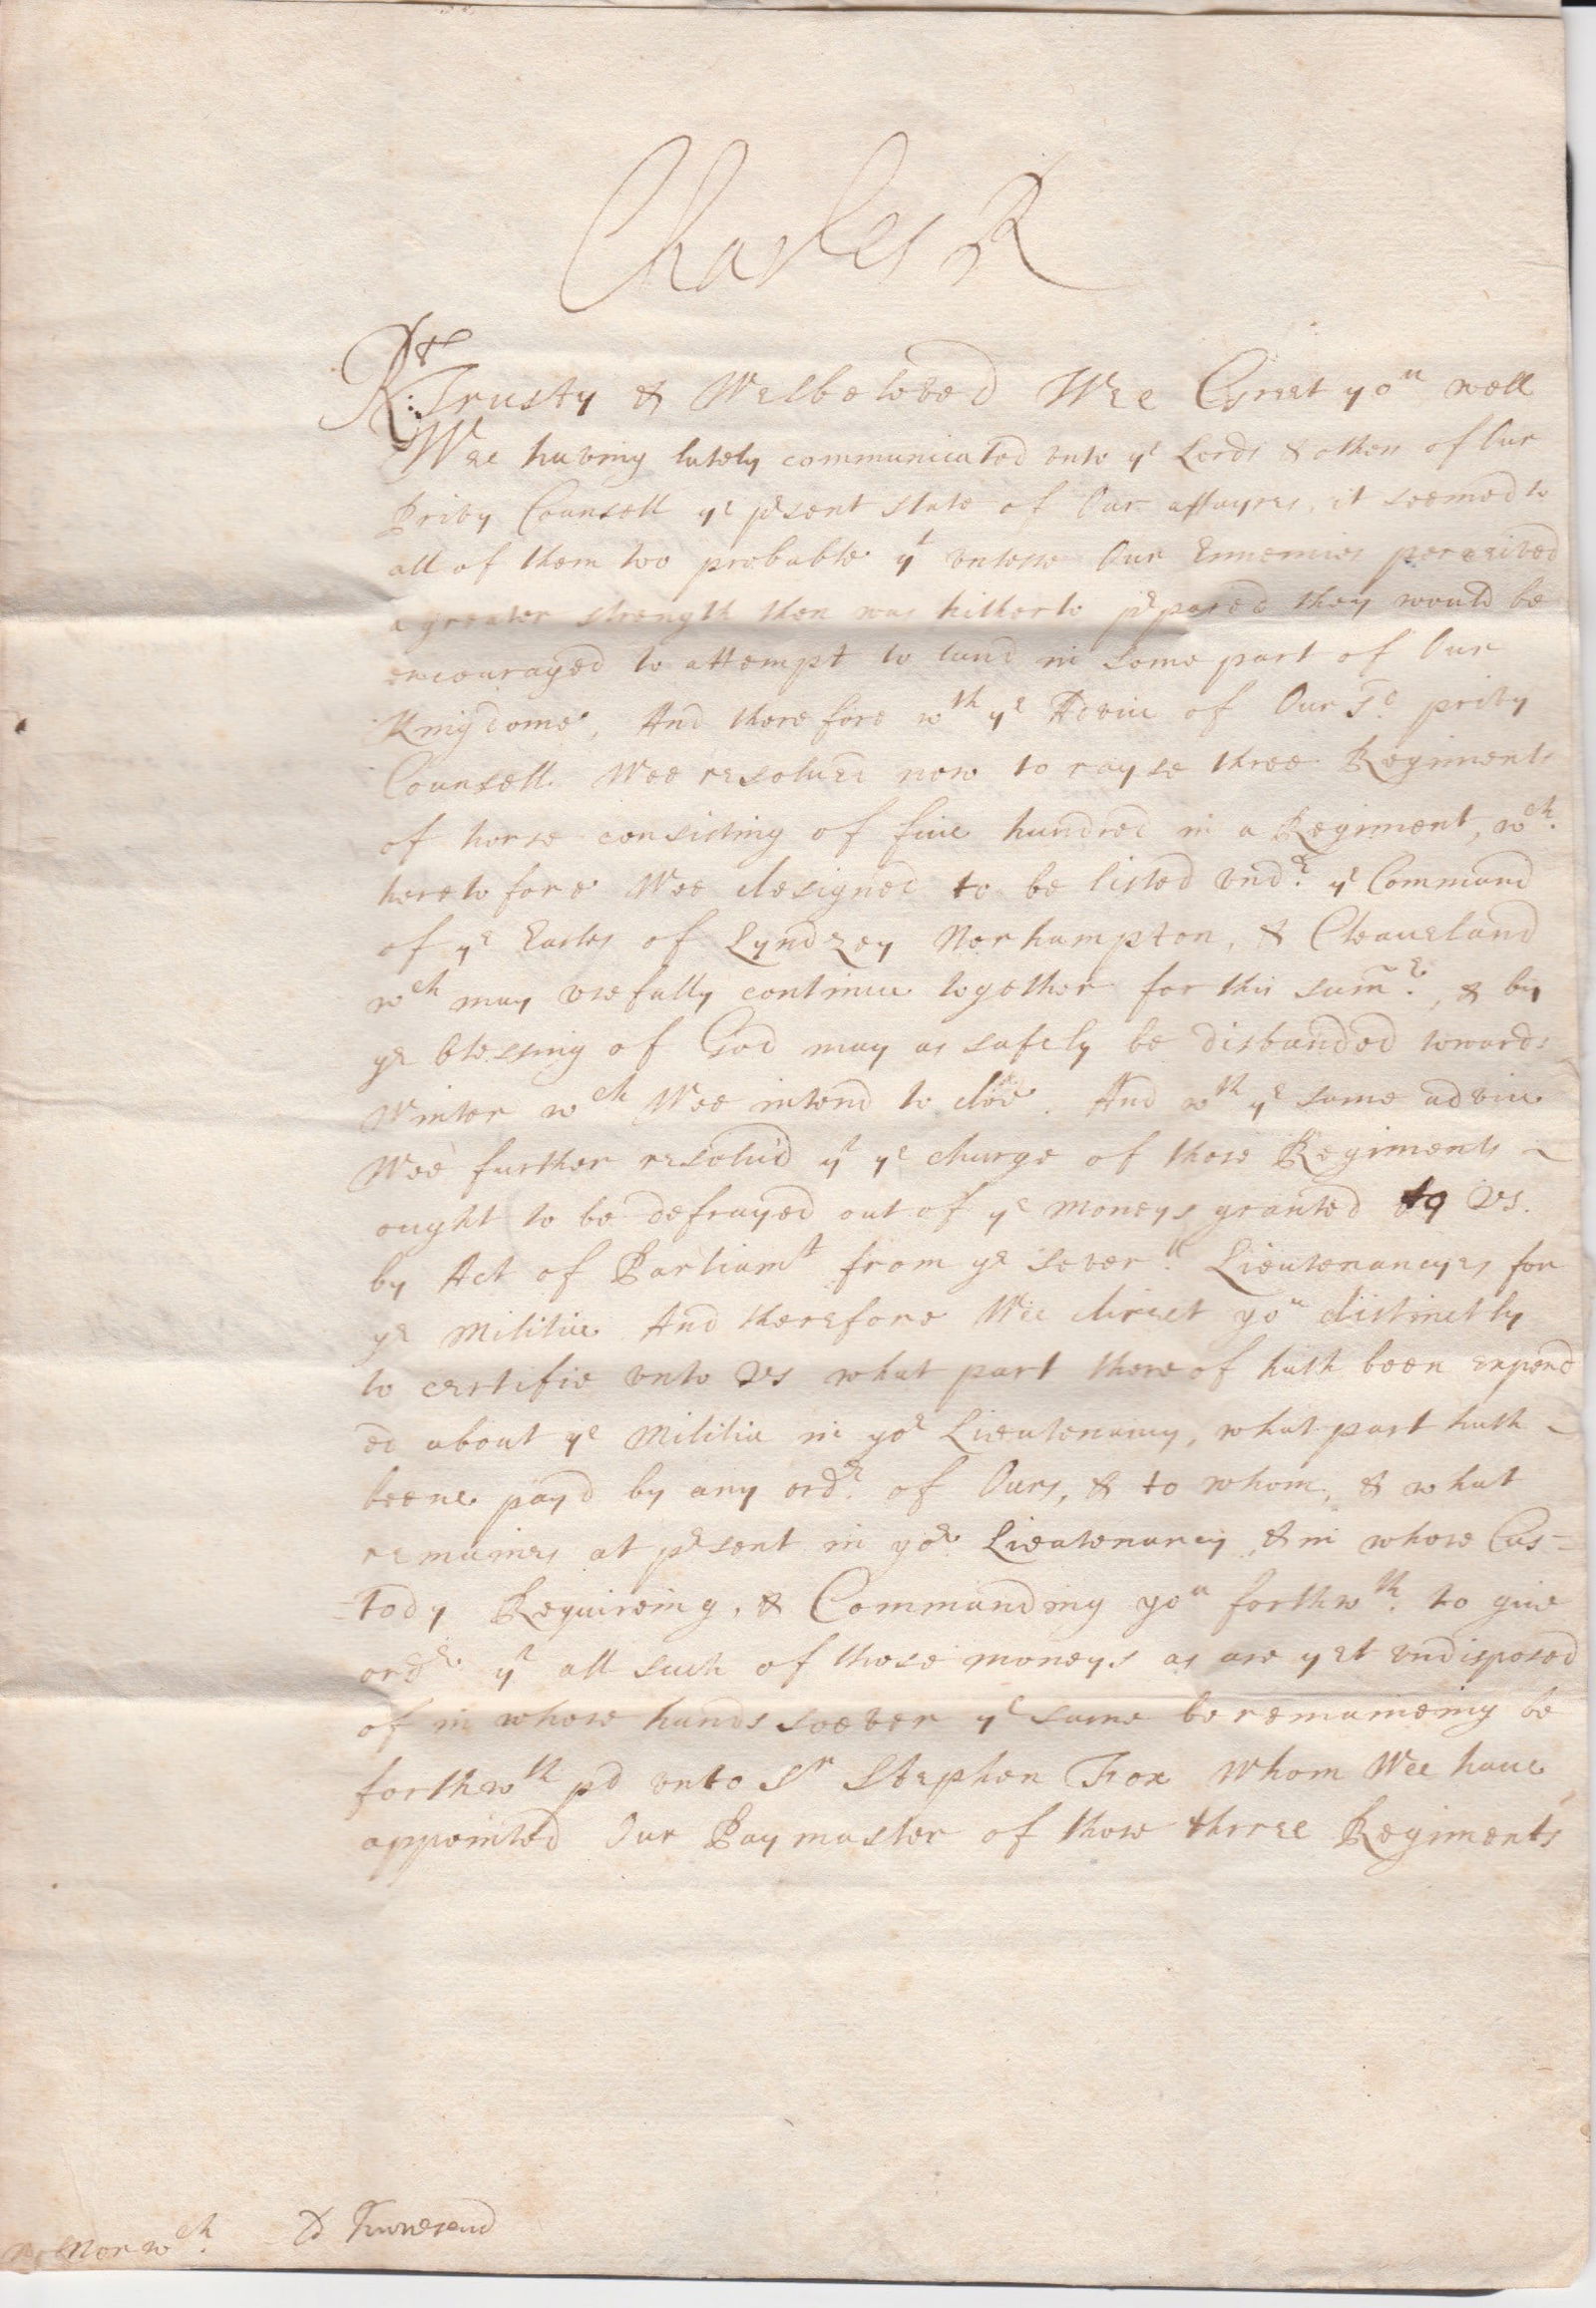 Charles R
Rt: Trusty & Welbeloved Wee Greet you well
Wee having lately communicated vnto ye Lords & others of Our
Privy Counsell ye prsent state of Our affayres, it seemed to
all of them too probable yt vnlesse Our Ennemies perceived
a greater strength then was hitherto prpared they would be
encouraged to attempt to land in some part of Our
Kingdome, And therefore wth ye Advice of Our sd. privy
Counsell Wee resolved now to rayse three Regiments
of horse consisting of five hundred in a Regiment, wch.
heretofore Wee designed to be listed vndr. ye Command
of ye Earles of Lyndzey Norhampton, & Cleaveland
wch may vsefully continue together for this sum̃r., & by
ye blessing of God may as safely be disbanded towards
Winter wch Wee intend to doe. And wth ye same advice
Wee further resolu'd yt ye charge of those Regiments ~
ought to be defrayed out of ye moneys granted to vs.
by Act of Parliamt from ye severll. Lieutenancyes for
ye Militia And therefore Wee direct you distinctly
to certifie vnto vs what part thereof hath been expend
ed about ye Militia in yor Lieutenancy, what part hath ~
beene payd by any ordr. of Ours, & to whom, & what
remaines at prsent in yor Lieutenancy, & in whose Cus=
=tody Requireing, & Commanding you forthwth. to give
ordr yt all such of those moneys as are yet vndisposed
of in whose hands soever ye same be remaineing be
forthwth pd vnto Sr Stephen Fox whom Wee have
appointed Our Paymaster of those three Regiments
Norwch. Ld Townesend